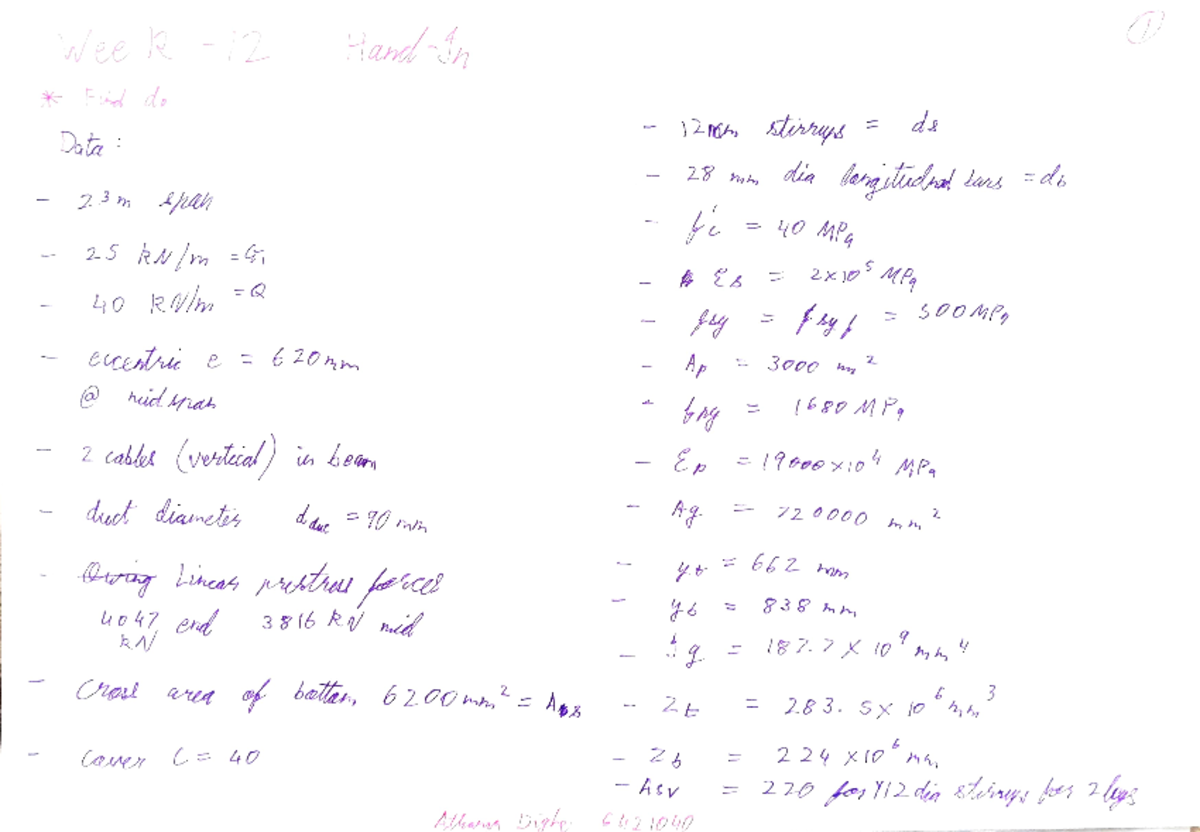 Week - 12 Hand-In
①
* Find do
Data :
- 23 m span
- 25 kN/m = G,
- 40 kN/m = Q
- eccentric e = 620 mm
@ midspan
- 2 cables (vertical) in beam
- duct diameter d duc = 90 mm
- Linear prestress forces
4047 kN end 3816 kN mid
- Cross area of bottom 6200 mm² =
- Cover C = 40
- 12 mm stirrups = ds
- 28 mm dia longitudnal bars = db
- f'c = 40 MPa
- Es = 2×10⁵ MPa
- fsy = fsyf = 500 MPa
- Ap = 3000 mm²
- fpy = 1680 MPa
- Ep = 19000×10⁴ MPa
- Ag = 720000 mm²
- yt = 662 mm
- yb = 838 mm
- Ig = 187.7 × 10⁹ mm⁴
- Zt = 283.5 × 10⁶ mm³
- Zb = 224 ×10⁶ mm
- Asv = 220 for Y12 dia stirrups for 2 legs